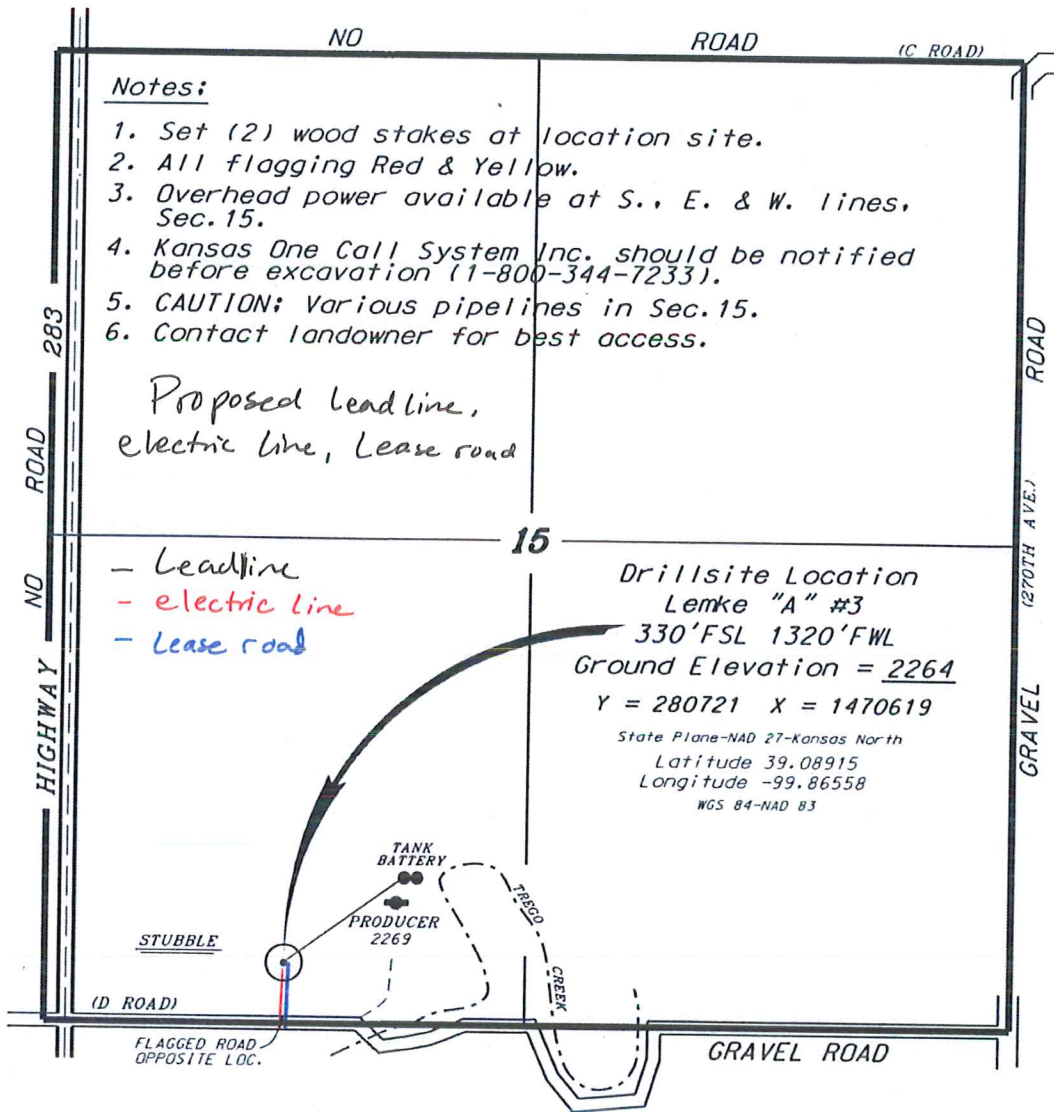 NO ROAD (C ROAD)
Notes:
1. Set (2) wood stakes at location site.
2. All flagging Red & Yellow.
3. Overhead power available at S., E. & W. lines,
Sec. 15.
4. Kansas One Call System Inc. should be notified
before excavation (1-800-344-7233).
5. CAUTION: Various pipelines in Sec. 15.
6. Contact landowner for best access.
Proposed Leadline,
electric line, Lease road
HIGHWAY 283
NO ROAD
GRAVEL ROAD
(270TH AVE.)
15
- Leadline
- electric line
- Lease road
Drillsite Location
Lemke "A" #3
330'FSL 1320'FWL
Ground Elevation = 2264
Y = 280721 X = 1470619
State Plane-NAD 27-Kansas North
Latitude 39.08915
Longitude -99.86558
WGS 84-NAD 83
TANK
BATTERY
PRODUCER
2269
TREGO
CREEK
STUBBLE
(D ROAD)
FLAGGED ROAD
OPPOSITE LOC.
GRAVEL ROAD